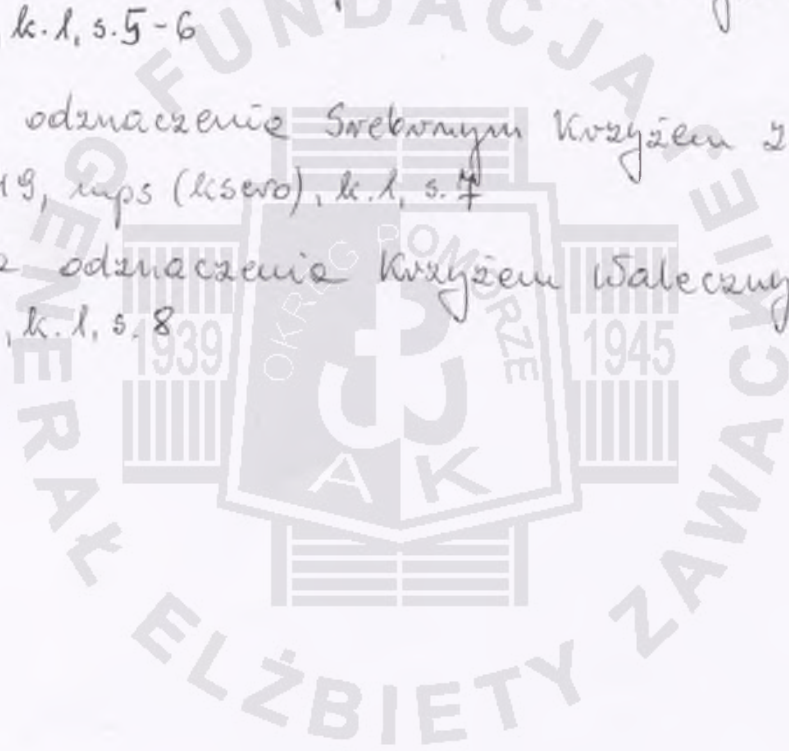 k. 1, s. 5-6
odznaczenie Srebrnym Krzyżem z
19, mps (ksero), k. 1, s. 7
odznaczenia Krzyżem Waleczny
, k. 1, s. 8
FUNDACJA
GENERAŁ ELŻBIETY ZAWACKIEJ
OKRĘG POMORZE
1939
1945
AK